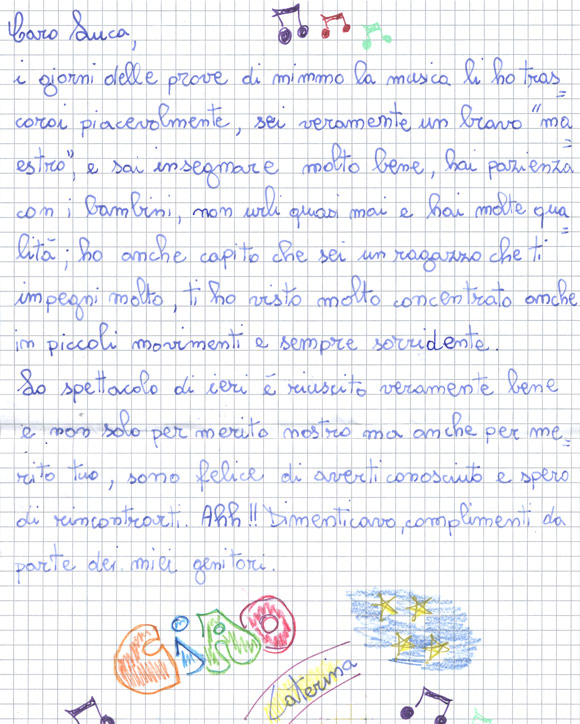 Caro Luca,
i giorni delle prove di mimmo la musica li ho tras=
corsi piacevolmente, sei veramente un bravo "ma=
estro", e sai insegnare molto bene, hai pazienza
con i bambini, non urli quasi mai e hai molte qua=
lità; ho anche capito che sei un ragazzo che ti
impegni molto, ti ho visto molto concentrato anche
in piccoli movimenti e sempre sorridente.
Lo spettacolo di ieri è riuscito veramente bene
e non solo per merito nostro ma anche per me=
rito tuo, sono felice di averti conosciuto e spero
di rincontrarti. Ahh!! Dimenticavo, complimenti da
parte dei miei genitori.
CiAO
Caterina